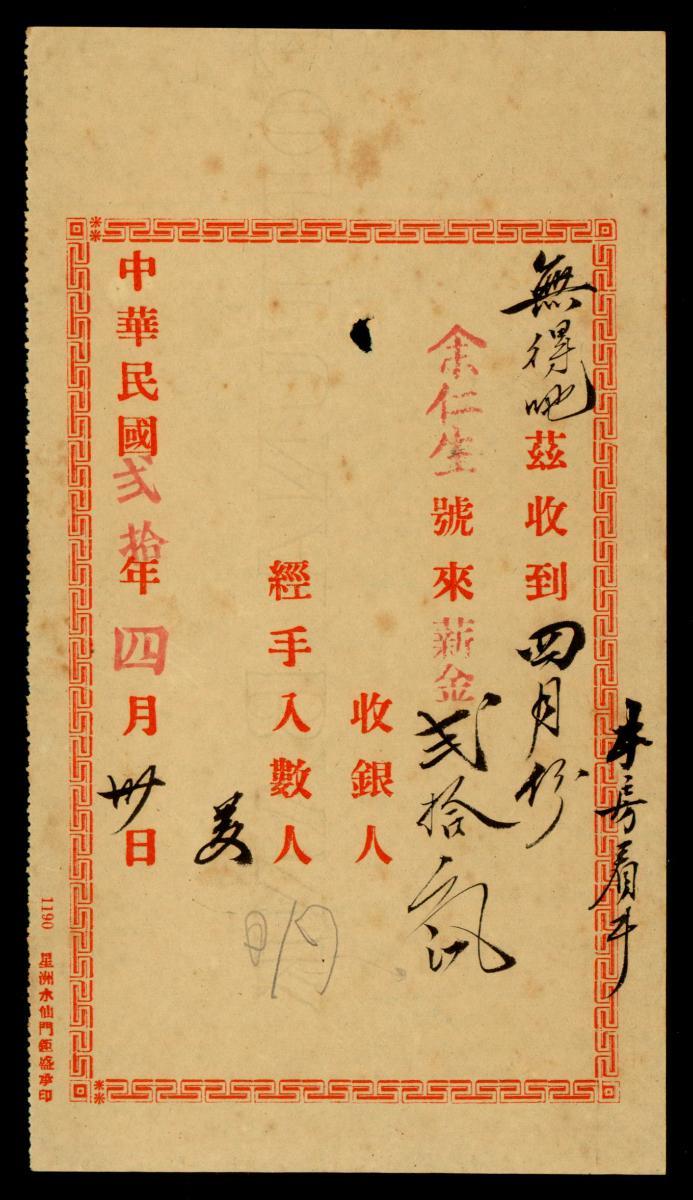 房看
無得吔茲收到四月份
余仁生號來薪金弍拾
收銀人
經手入數人
明
中華民國弍拾年四月卅日
1190 星洲水仙門鉅盛承印